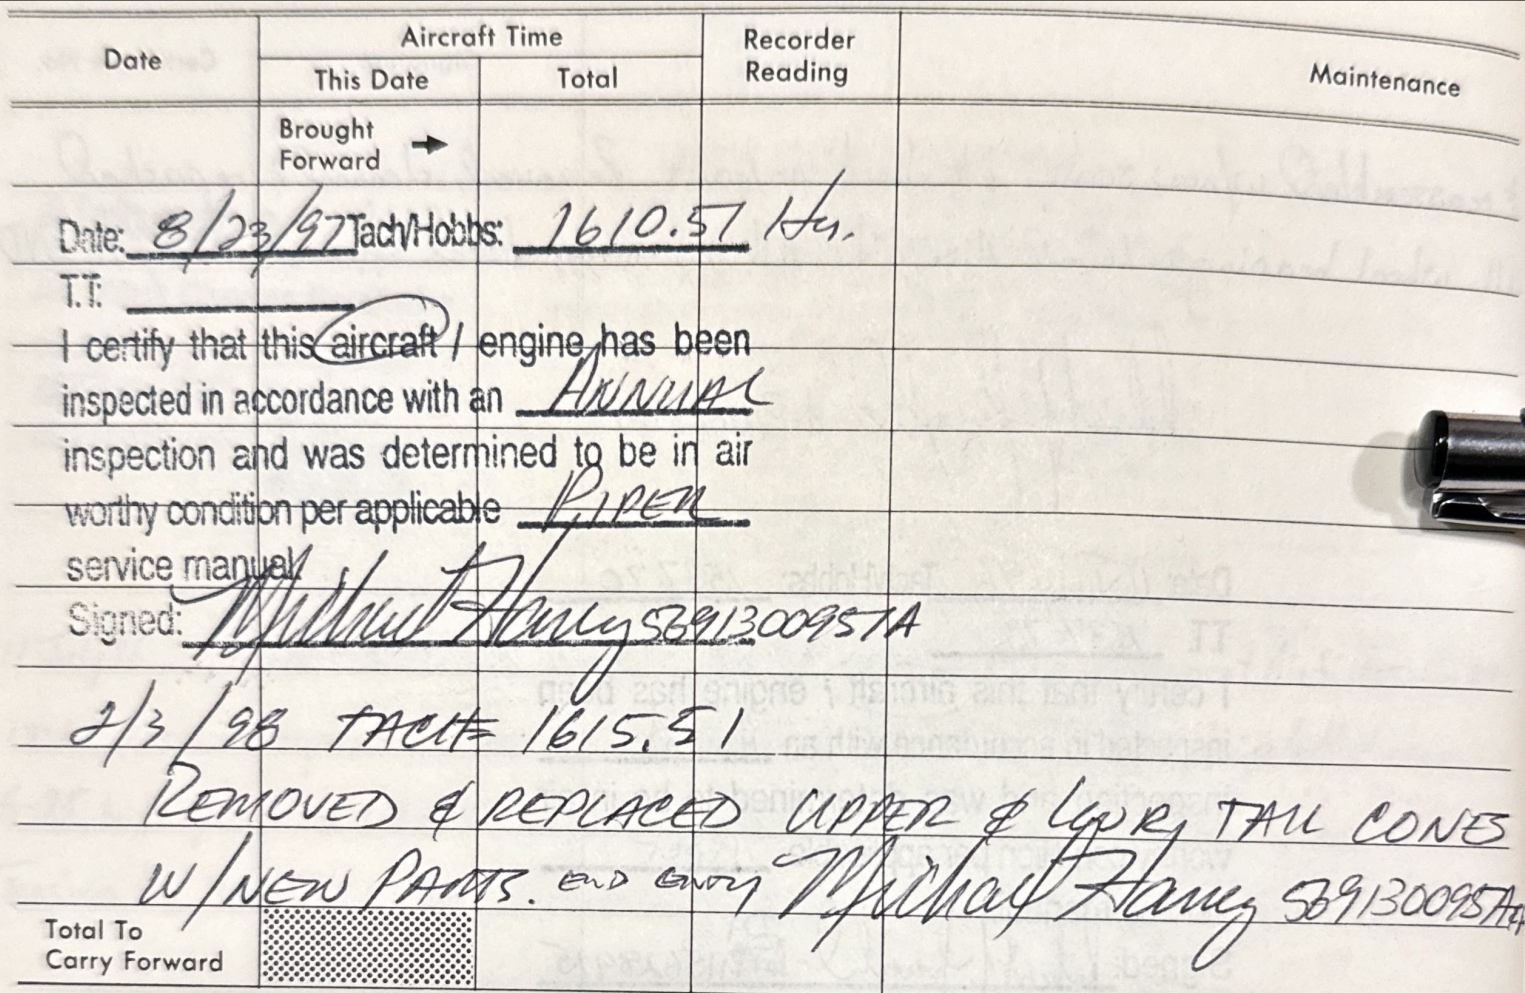 Date Aircraft Time Recorder Reading Maintenance
This Date Total
Brought Forward →
Date: 8/23/97 Tach/Hobbs: 1610.51 Hrs.
T.T:
I certify that this aircraft / engine has been
inspected in accordance with an ANNUAL
inspection and was determined to be in air
worthy condition per applicable PIPER
service manual.
Signed: Michael Haney 569130095IA
2/3/98 TACH= 1615.51
REMOVED & REPLACED UPPER & LOWR, TAIL CONES
W/NEW PARTS. END ENTRY Michael Haney 569130095
Total To
Carry Forward